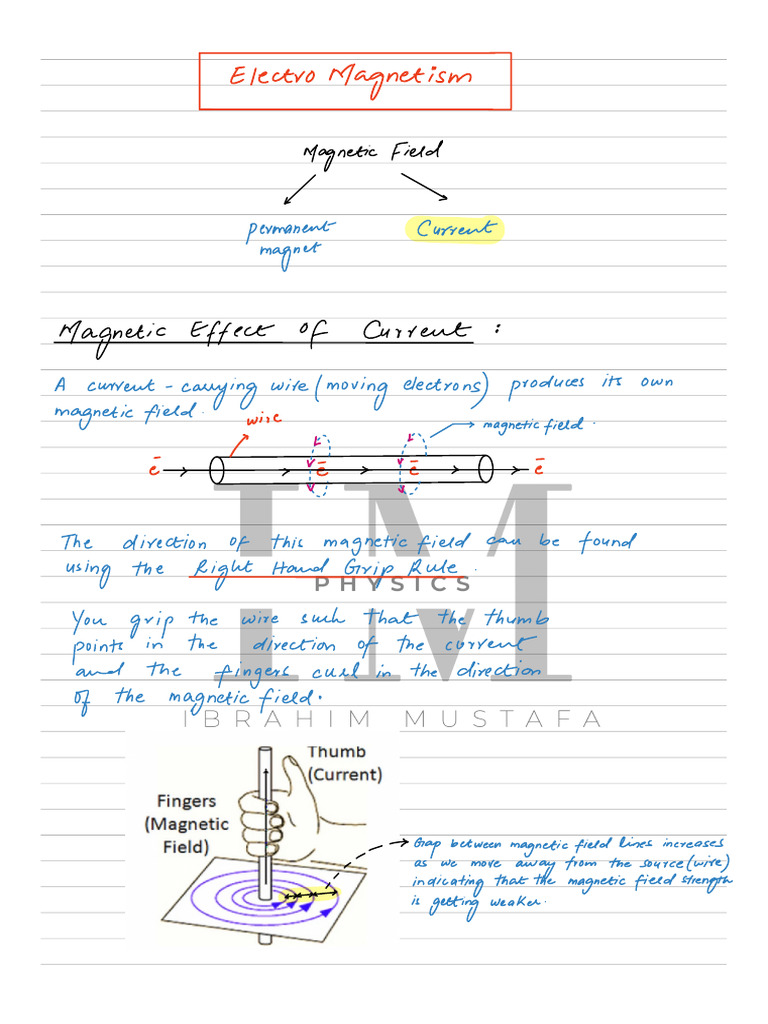 Electro Magnetism
Magnetic Field
permanent
magnet
Current
Magnetic Effect of Current :
A current - carrying wire (moving electrons) produces its own
magnetic field.
wire
magnetic field.
e̅
e̅
e̅
e̅
The direction of this magnetic field can be found
using the Right Hand Grip Rule.
PHYSICS
You grip the wire such that the thumb
points in the direction of the current
and the fingers curl in the direction
of the magnetic field.
IM
IBRAHIM MUSTAFA
Thumb
(Current)
Fingers
(Magnetic
Field)
Gap between magnetic field lines increases
as we move away from the source (wire)
indicating that the magnetic field strength
is getting weaker.